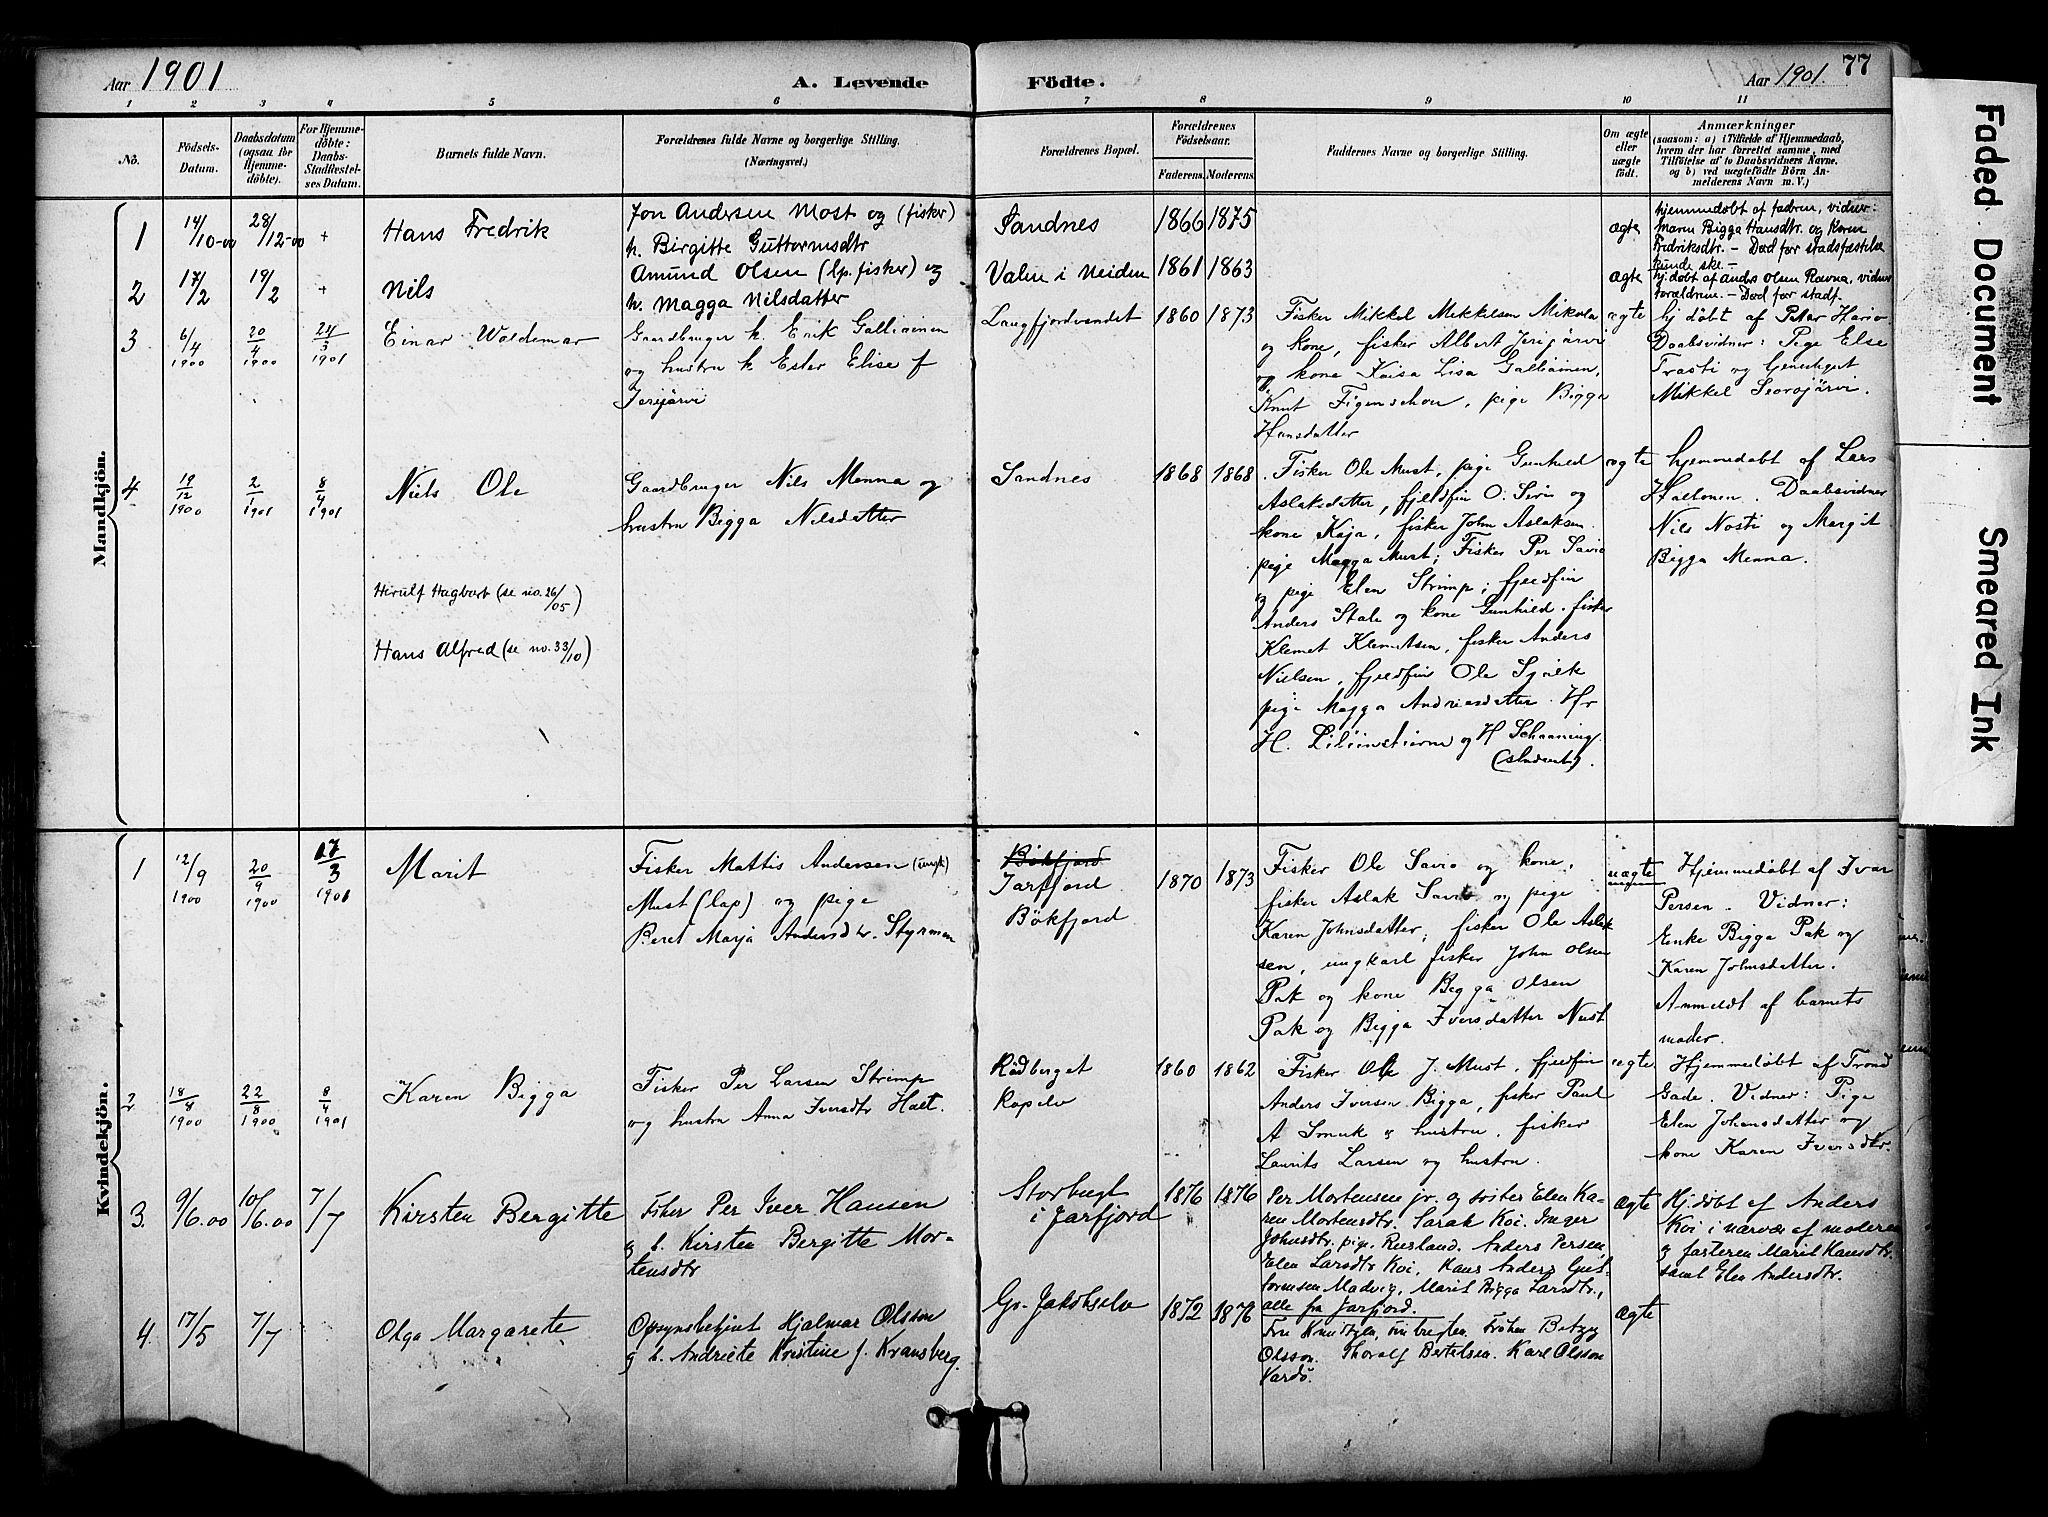 Aar 1901
A. Levende
Födte.
Aar 1901.
77
1 2 3 4 5 6 7 8 9 10 11
No.
Födsels-
Datum.
Daabsdatum
(ogsaa for
Hjemme-
döbte).
For Hjemme-
döbte:
Daabs-
Stadfæstel-
ses Datum.
Barnets fulde Navn.
Forældrenes fulde Navne og borgerlige Stilling.
(Næringsvei.)
Forældrenes Bopæl.
Forældrenes
Födselsaar.
Faderens. Moderens.
Faddernes Navne og borgerlige Stilling.
Om ægte
eller
uægte
födt.
Anmærkninger
(saasom: a) i Tilfælde af Hjemmedaab,
hvem der har forrettet samme, med
Tilföielse af to Daabsvidners Navne,
og b) ved uægtefödte Börn An-
melderens Navn m. V.)
Mandkjön.
1
14/10-00
28/12-00
+
Hans Fredrik
Jon Andersen Most og (fisker)
h. Birgitte Guttormsdtr
Sandnes
1866 1875
ægte
hjemmedøbt af fadren, vidner:
Maren Bigga Hansdtr. og Karen
Fredriksdtr. – Død før stadsfæstelse
kunde ske. –
2
17/2
19/2
+
Nils
Amund Olsen (lp. fisker) og
h. Magga Nilsdatter
Valen i Neiden
1861 1863
ægte
hj. døbt af Anders Olsen Ravna, vidner
forældrene. – Død før stadf.
3
6/4 1900
20/4 1900
24/3 1901
Einar Waldemar
Gaardbruger k. Erik Galliainen
og hustru k. Ester Elise f
Jerijärvi
Langfjordvandet
1860 1873
Fisker Mikkel Mikkelsen Mikola
og kone, fisker Albert Jerijärvi
og kone Kaisa Lisa Galliainen,
Knut Figenschou, pige Bigga
Hansdatter
ægte
hj døbt af Peter Hario
Daabsvidner: Pige Else
Trasti og
Mikkel
4
19/12 1900
2/1 1901
8/4 1901
Niels Ole
Gaardbruger Nils Menna og
hustru Bigga Nilsdatter
Sandnes
1868 1868
Fisker Ole Must, pige Gunhild
Aslaksdatter, fjeldfin O. Siri og
kone Kaja, fisker John Aslaksen
pige Magga Must; Fisker Per Savio
og pige Elen Strimp; fjeldfin
Anders Stale og kone Gunhild. fisker
Klemet Klemetsen, fisker Anders
Nielsen, fjeldfin Ole
pige Magga Andriasdatter. Hr
H. og H Schaaning
(student).
ægte
hjemmedøbt af Lars
Haltonen. Daabsvidner
Nils Nosti og Margit
Bigga Menna.
Herulf Hagbart (se no. 26/05)
Hans Alfred (se no. 33/10)
Kvindekjön.
1
12/9 1900
20/9 1900
17/3 1901
Marit
Fisker Mattis Andersen (ungk)
Must (lap) og pige
Beret Marja Andersdtr. Styrman
Bökfjord
Jarfjord
Bökfjord
1870 1873
Fisker Ole Savio og kone,
fisker Aslak Savio og pige
Karen Johnsdatter, fisker Ole Aslak
sen, ungkarl fisker John Olsen
Pak og kone Bigga Olsen
Pak og Bigga Iversdatter Nust
uægte
Hjemmedøbt af Ivar
Persen. Vidner:
Enke Bigga Pak og
Karen Johnsdatter.
Anmeldt af barnets
moder.
2
18/8 1900
22/8 1900
8/4 1901
Karen Bigga
Fisker Per Larsen Strimp
og hustru Anna Iversdtr Halt.
Rödberget
Ropelv
1860 1862
Fisker Ole J. Must, fjeldfin
Anders Iversen Bigga, fisker Paul
A Smuk og hustru, fisker
Laurits Larsen og hustru.
ægte
Hjemmedøbt af Trond
Gade. Vidner: Pige
Elen Johansdatter og
kone Karen Iversdtr.
3.
9/6.00
10/6.00
7/7
Kirsten Bergitte
Fisker Per Iver Hansen
og h. Kirsten Bergitte Mor-
tensdtr
Storbugt
i Jarfjord
1876 1876
Per Mortensen jr. og søster Elen Ka-
ren Mortensdtr. Sarak Koi. Inger
Johnsdtr. pige. Anders Persen,
Elen Larsdtr Koi, Hans Anders Gut-
tormsen Madvig, Marit Bigga Larsdtr.,
alle fra Jarfjord.
Ægte
Hj. døbt af Anders
Koi i nærvær af moderen
og fasteren Marit Hansdtr.
samt Elen Andersdtr.
4.
17/5
7/7
Olga Margarete
Opsynsbetjent Hjalmar Olsson
og h. Andriete Kristine f. Kransberg.
Gr. Jakobselv
1872 1876
Fru Knudtzen, Frøken Betzy
Olsson. Thoralf Bertelsen. Karl Olsson
Vardö.
Ægte
Faded Document
Smeared Ink